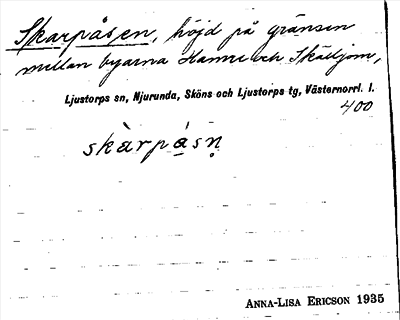 Skarpåsen, höjd på gränsen
mellan byarna Hamre och Skälljom,
Ljustorps sn, Njurunda, Sköns och Ljustorps tg, Västernorrl. l.
400
skàrpåsn̥
ANNA-LISA ERICSON 1935